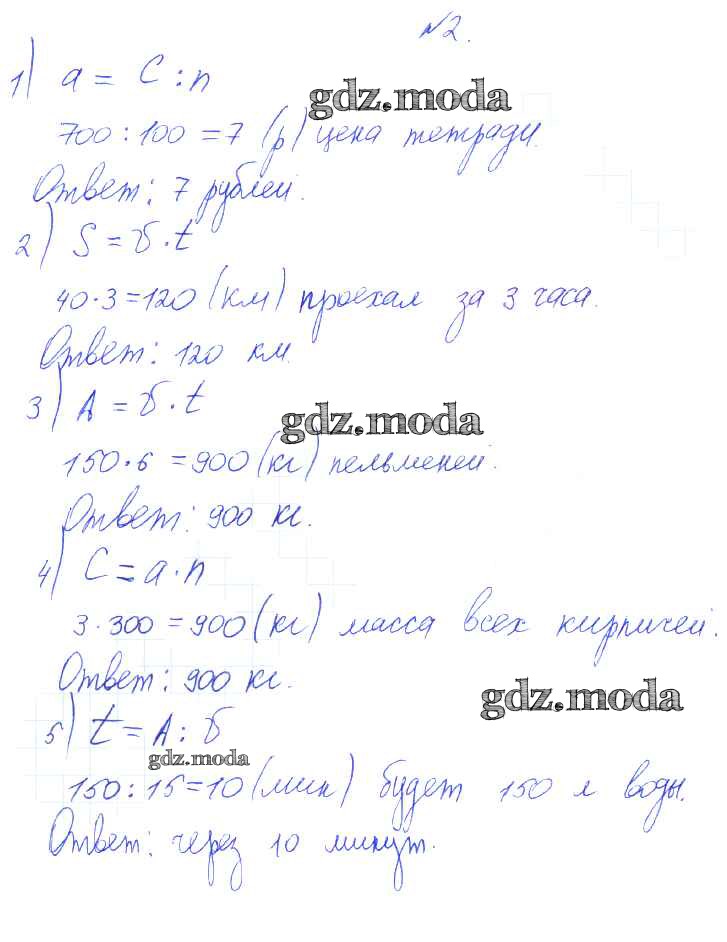 №2.
1) a = C : n
gdz.moda
700 : 100 = 7 (р) цена тетради.
Ответ: 7 рублей.
2) S = v · t
40 · 3 = 120 (км) проехал за 3 часа.
Ответ: 120 км.
3) A = v · t
gdz.moda
150 · 6 = 900 (кг) пельменей.
Ответ: 900 кг.
4) C = a · n
3 · 300 = 900 (кг) масса всех кирпичей.
Ответ: 900 кг.
gdz.moda
5) t = A : v
gdz.moda
150 : 15 = 10 (мин) будет 150 л воды.
Ответ: через 10 минут.